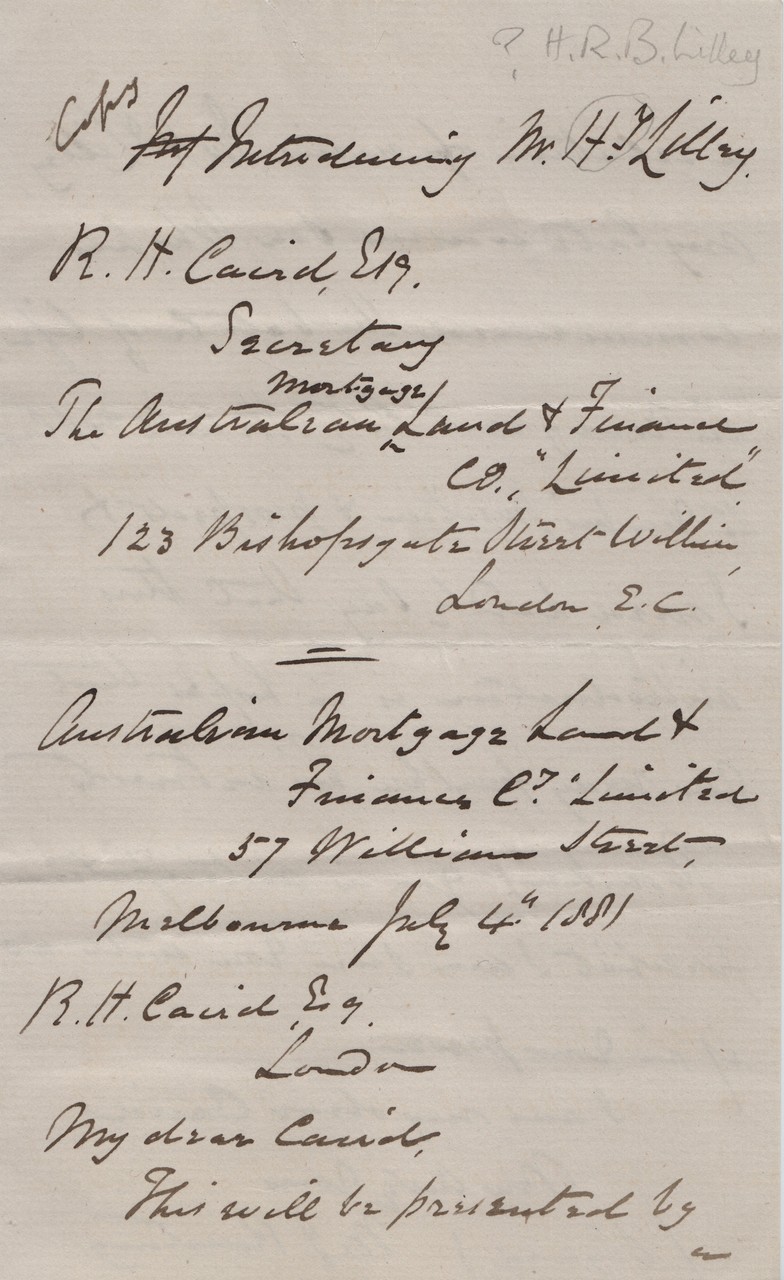 ? H.R.B. Lilley
Copy
Introducing Mr. H. J Lilley.
R. H. Caird, Esq.
Secretary
Mortgage/
The Australian Land & Finance
Co., "Limited",
123 Bishopsgate Street Within,
London, E.C.
Australian Mortgage Land &
Finance Co. "Limited
57 William Street,
Melbourne July 4th 1881
R. H. Caird, Esq.
London
My dear Caird,
This will be presented by